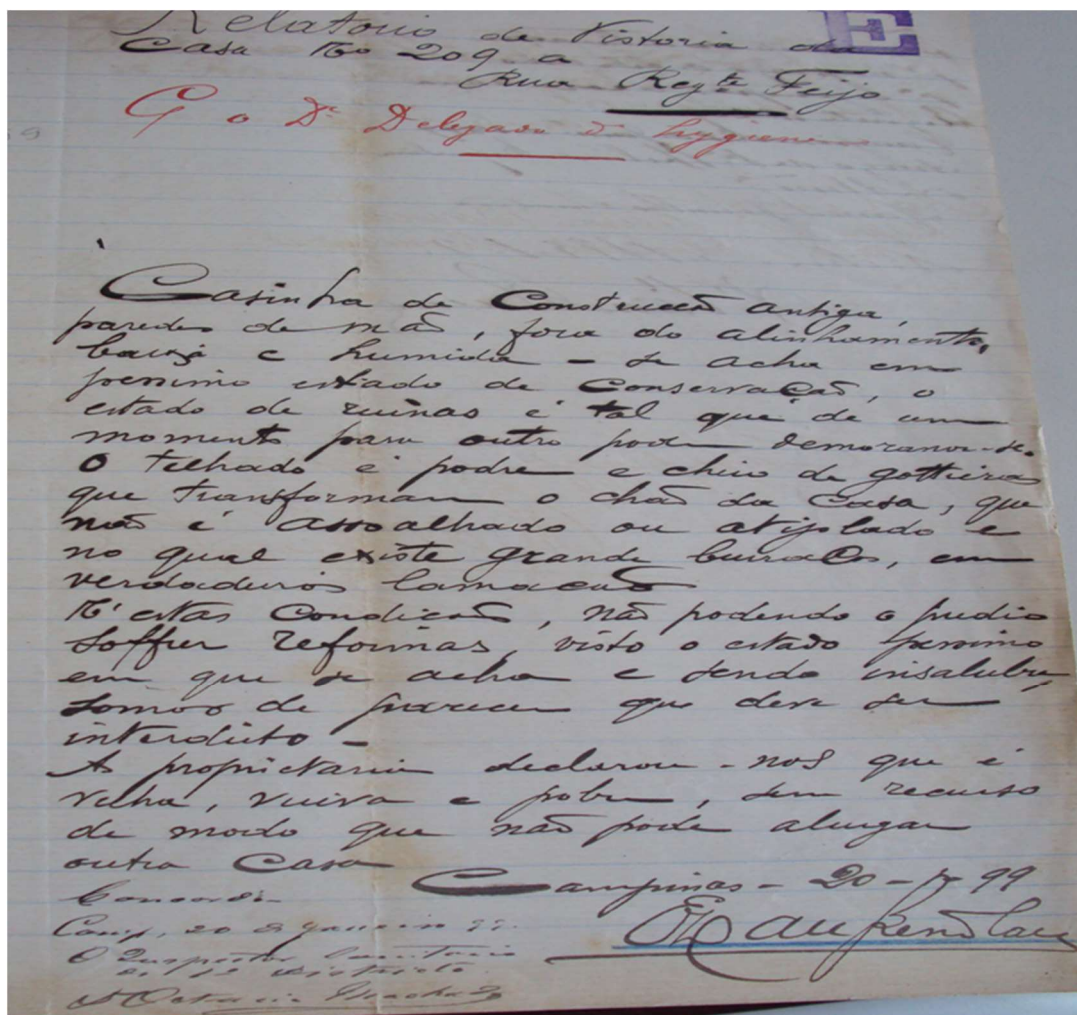 Relatorio de Vistoria da
Casa Nº 209 a
Rua Regte Feijo
E
Dr Delegado d' hygiene
Casinha de Construcção antiga,
paredes de mão, fora do alinhamento,
baixa e humida - se acha em
pessimo estado de Conservação, o
estado de ruinas é tal que de um
momento para outro pode demoronar-se.
O telhado é podre e cheio de gotteiras
que transformam o chão da Casa, que
não é assoalhado ou atijolado e
no qual existe grande buracos, em
verdadeiros lamaçaes
N'estas Condições, não podendo o predio
soffrer reformas, visto o estado pessimo
em que se acha e sendo insalubre,
somos de parecer que deve ser
interdicto -
A proprietaria declarou-nos que é
velha, viuva e pobre, sem recurso
de modo que não pode alugar
outra Casa
Campinas - 20 - 99
Concordo.
Camp, 20 de Janeiro 99.
O Inspector Sanitario
do 1º Districto
Dr Octavio Machado